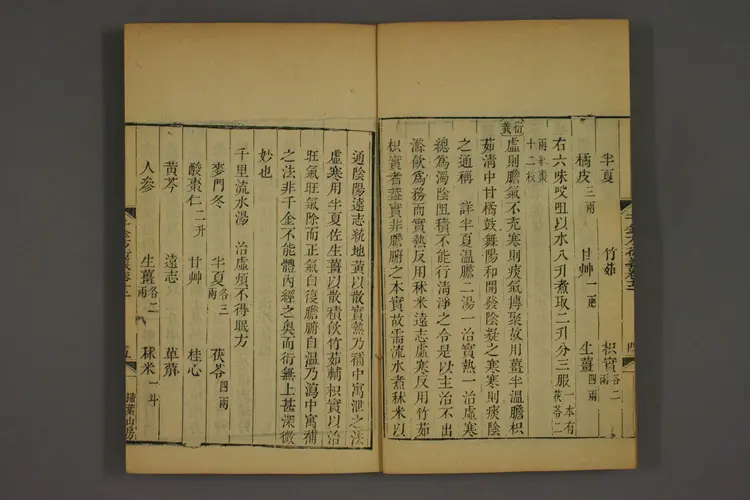 半夏 竹茹 枳實各二兩
橘皮三兩 甘艸一兩 生薑四兩
右六味㕮咀以水八升煮取二升分三服一本有茯苓二
兩紅棗
十二枚
衍義
虛則膽氣不充寒則痰氣摶聚故用薑半溫膽枳
茹清中甘橘鼓舞陽和開發陰凝之寒寒則痰陰
之通稱 詳半夏溫膽二湯一治實熱一治虛寒
總爲濁陰阻積不能行清淨之令是以主治不出
滌飲爲務而實熱反用秫米遠志虛寒反用竹茹
枳實者葢實非膽腑之本實故需流水煮秫米以
千金方衍義卷十二
四
通陰陽遠志統地黃以散實熱乃補中寓泄之法
虛寒用半夏佐生薑以散積飲竹茹輔枳實以治
旺氣旺氣除而正氣自復膽腑自溫乃瀉中寓補
之法非千金不能體內經之奧而衍無上甚深微
妙也
千里流水湯 治虛煩不得眠方
麥門冬 半夏各三兩 茯苓四兩
酸棗仁二升 甘艸 桂心
黃芩 遠志 萆薢
人參 生薑各二兩 秫米一斗
五
掃葉山房